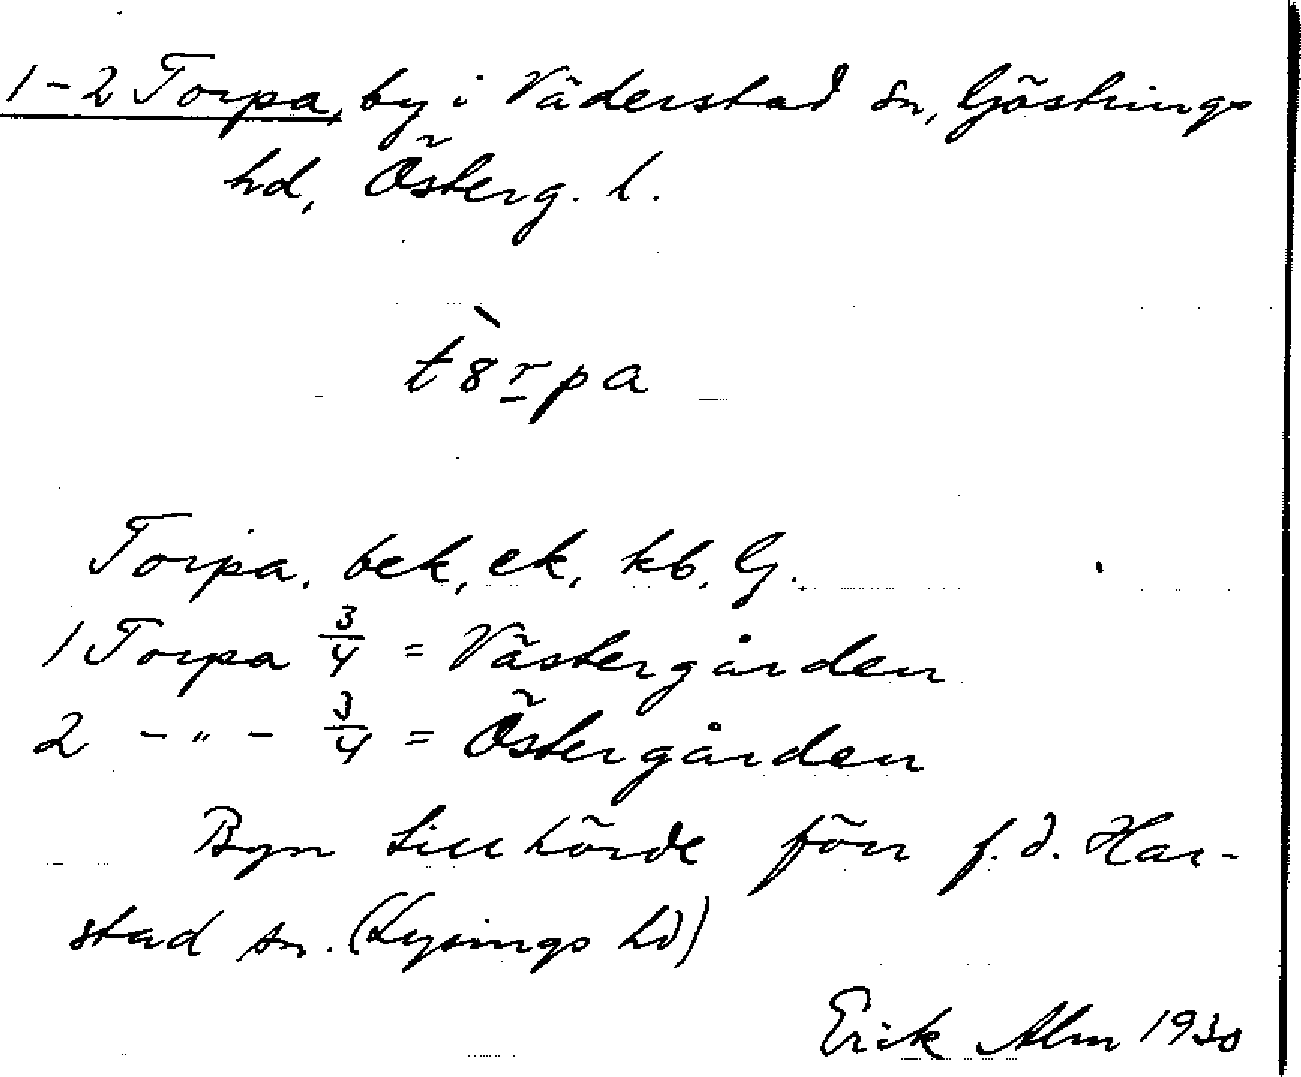 1-2 Torpa, by i Väderstad sn, Göstrings
hd, Österg. l.
t8̀r̲pa
Torpa. bek, ek, kb. G.
1 Torpa 3/4 = Västergården
2 -"- 3/4 = Östergården
Byn tillhörde förr f.d. Har-
stad sn. (Lysings hd)
Erik Alm 1930